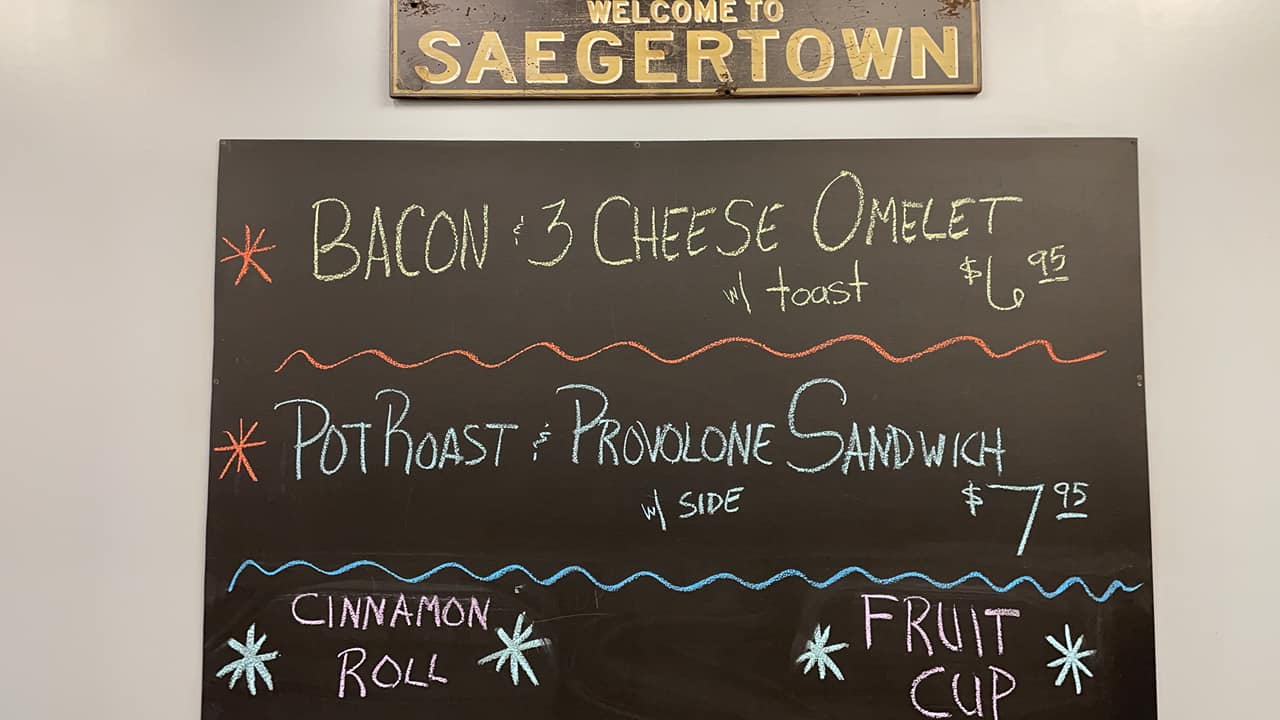 WELCOME TO
SAEGERTOWN
BACON & 3 CHEESE OMELET
w/ toast $6 95
POT ROAST & PROVOLONE SANDWICH
w/ SIDE $7 95
CINNAMON
ROLL
FRUIT
CUP